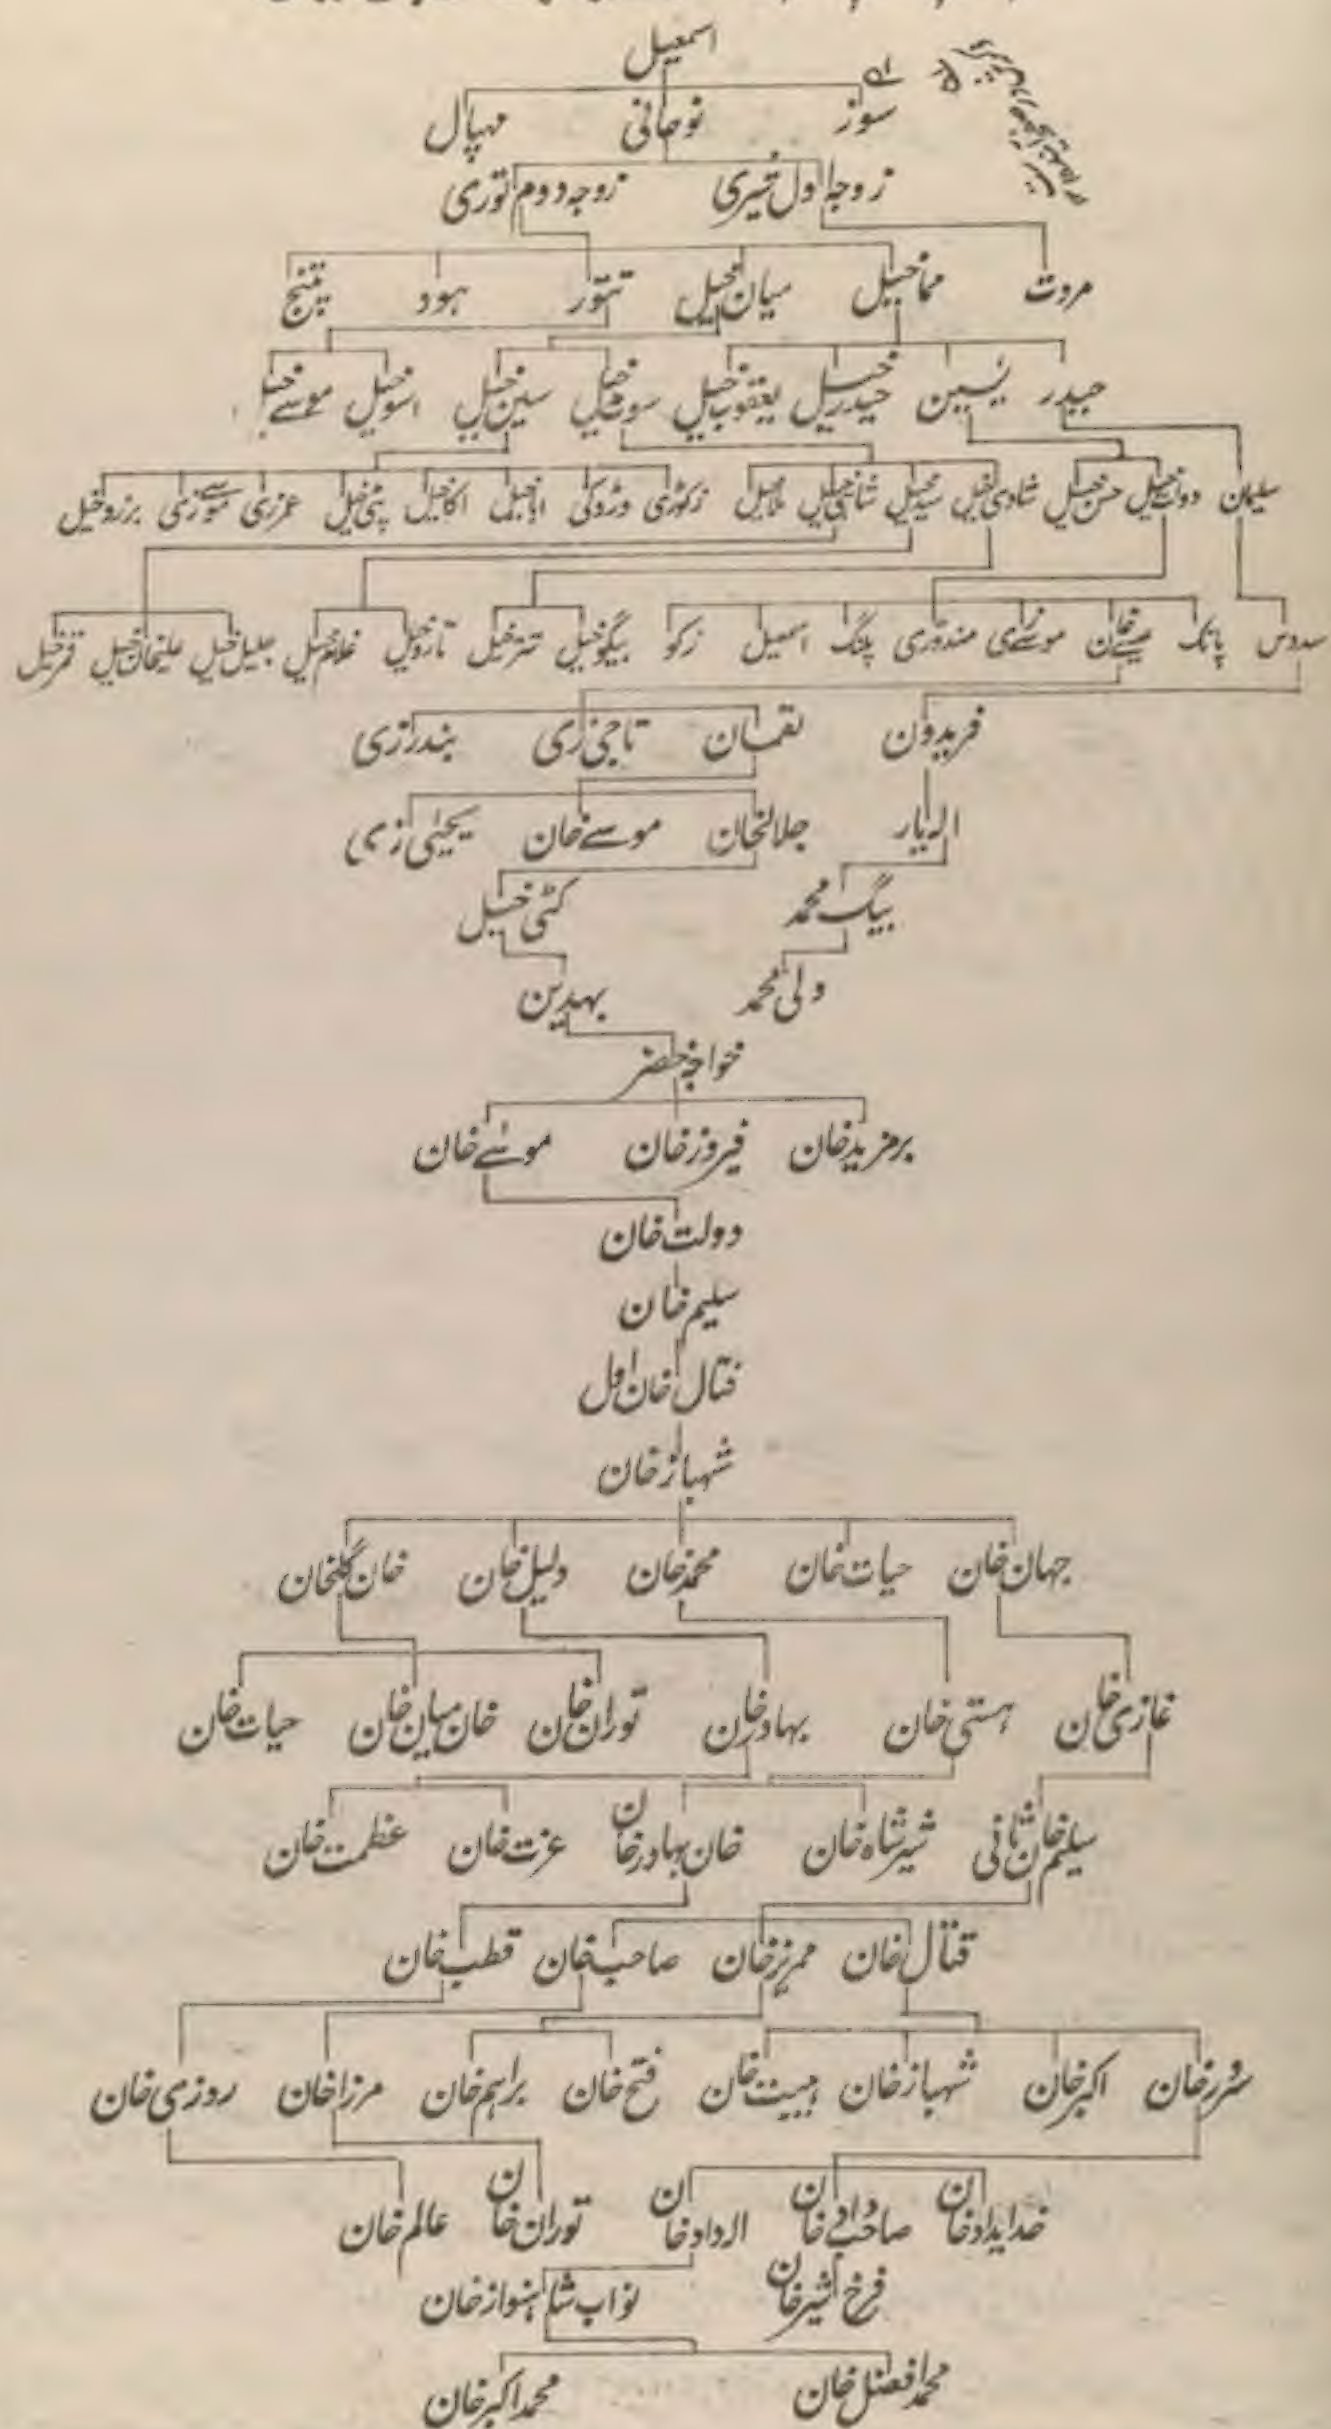 اسمعیل
سوز نوحانی مہپال
زوجہ اول قیری زوجہ دوم توری
مروت مماخیل میان خیل تتور ہود پتنج
حیدر یٰسین حیدر خیل یعقوب خیل سوت خیل سین خیل اسو خیل موسے خیل
سلیمان دولت خیل حسن خیل شادی خیل سید خیل شاہی خیل ملا خیل زکوڑی وڑوکی ابا خیل اکا خیل پٹی خیل عمر زی موسے زی برزو خیل
سدوس پانک عیسے خان موسے زی مندوزی پلنگ اسمعیل زکو بیگو خیل تتر خیل تازو خیل غلام خیل جلیل خیل علیخان خیل قمر خیل
فریدون لقمان تاجی زی بندر زی
الہ یار جلالخان موسے خان یحییٰ زی
بیگ محمد کٹی خیل
ولی محمد بہدین
خواجہ خضر
برمزید خان فیروز خان موسٰے خان
دولت خان
سلیم خان
قتال خان اول
شہباز خان
جہان خان حیات خان محمد خان دلیل خان خان گلخان
غازی خان ہستی خان بہادر خان توران خان خان میان خان حیات خان
سلیم خان ثانی شیر شاہ خان خان بہادر خان عزت خان عظمت خان
قتال خان ممریز خان صاحب خان قطب خان
سرور خان اکبر خان شہباز خان ہیبت خان فتح خان براہم خان مرزا خان روزی خان
خدایداد خان صاحبداد خان الہ داد خان توران خان عالم خان
فرخ شیر خان نواب شاہنواز خان
محمد افضل خان محمد اکبر خان